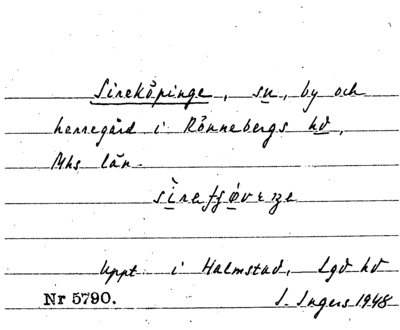 Sireköpinge, sn, by och
herregård i Rönnebergs hd,
Mhs län.
Uppt i Halmstad, Lgd hd
Nr 5790. I. Ingers 1948